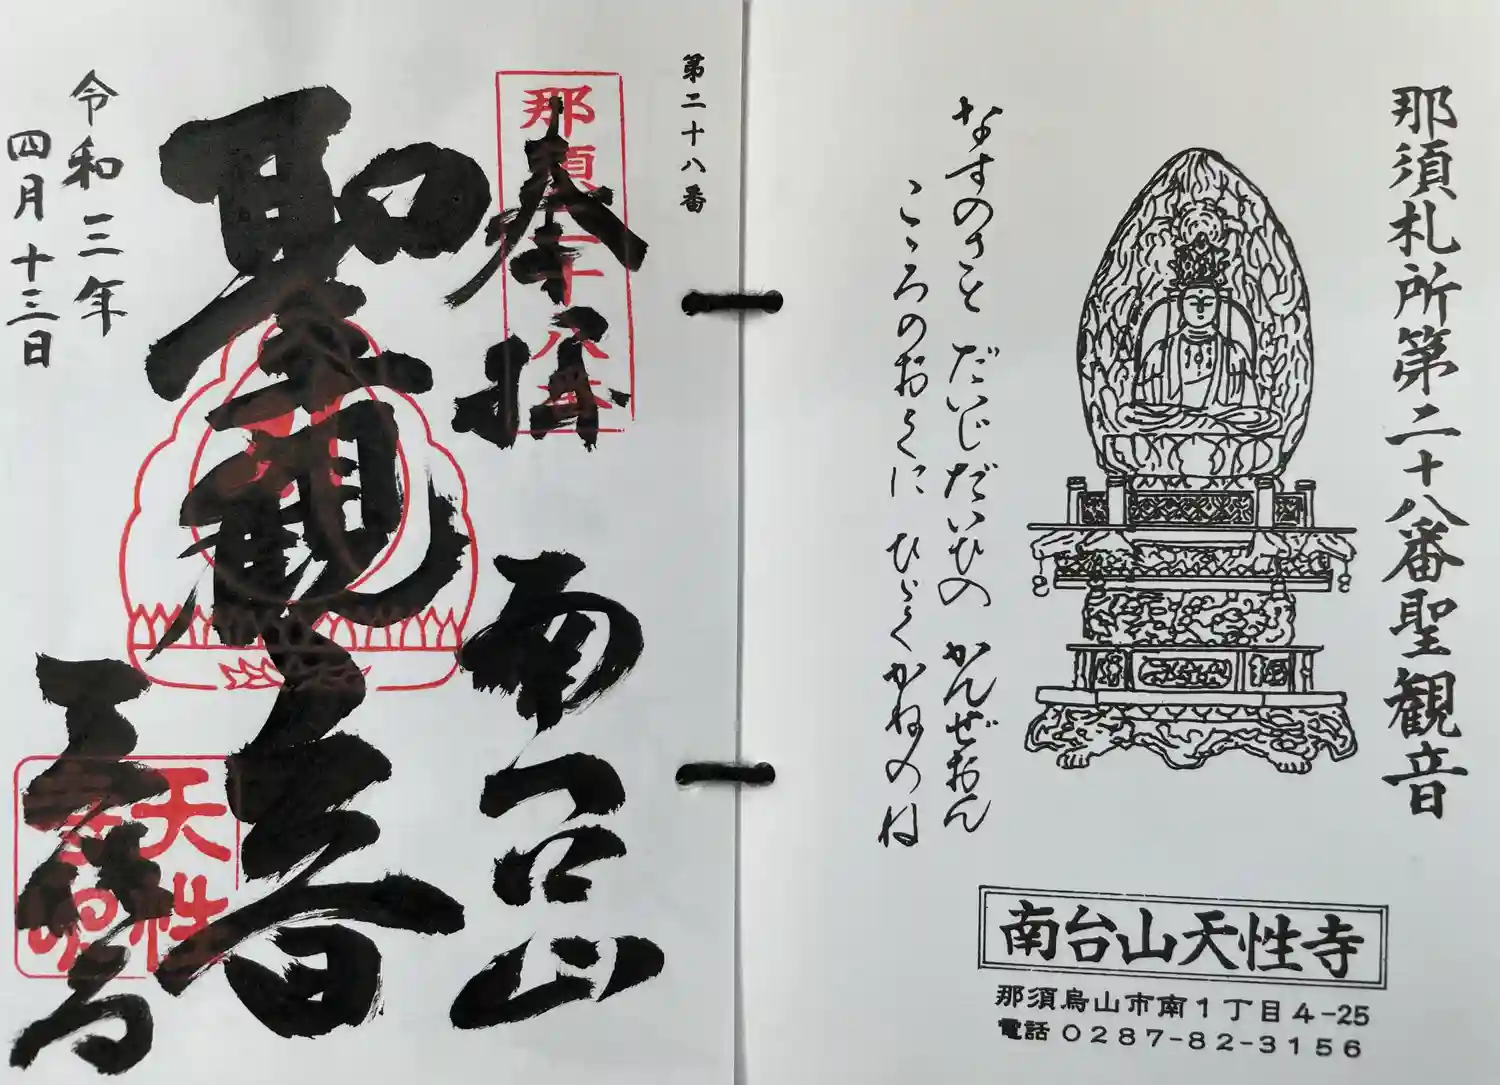 那須札所第二十八番聖観音
なすのさと だいじだいひの かんぜおん
こゝろのおくに ひゞくかねのね
南台山天性寺
那須烏山市南1丁目4-25
電話 0287-82-3156
第二十八番
奉拝
南台山
聖観音
天性寺
令和三年
四月十三日